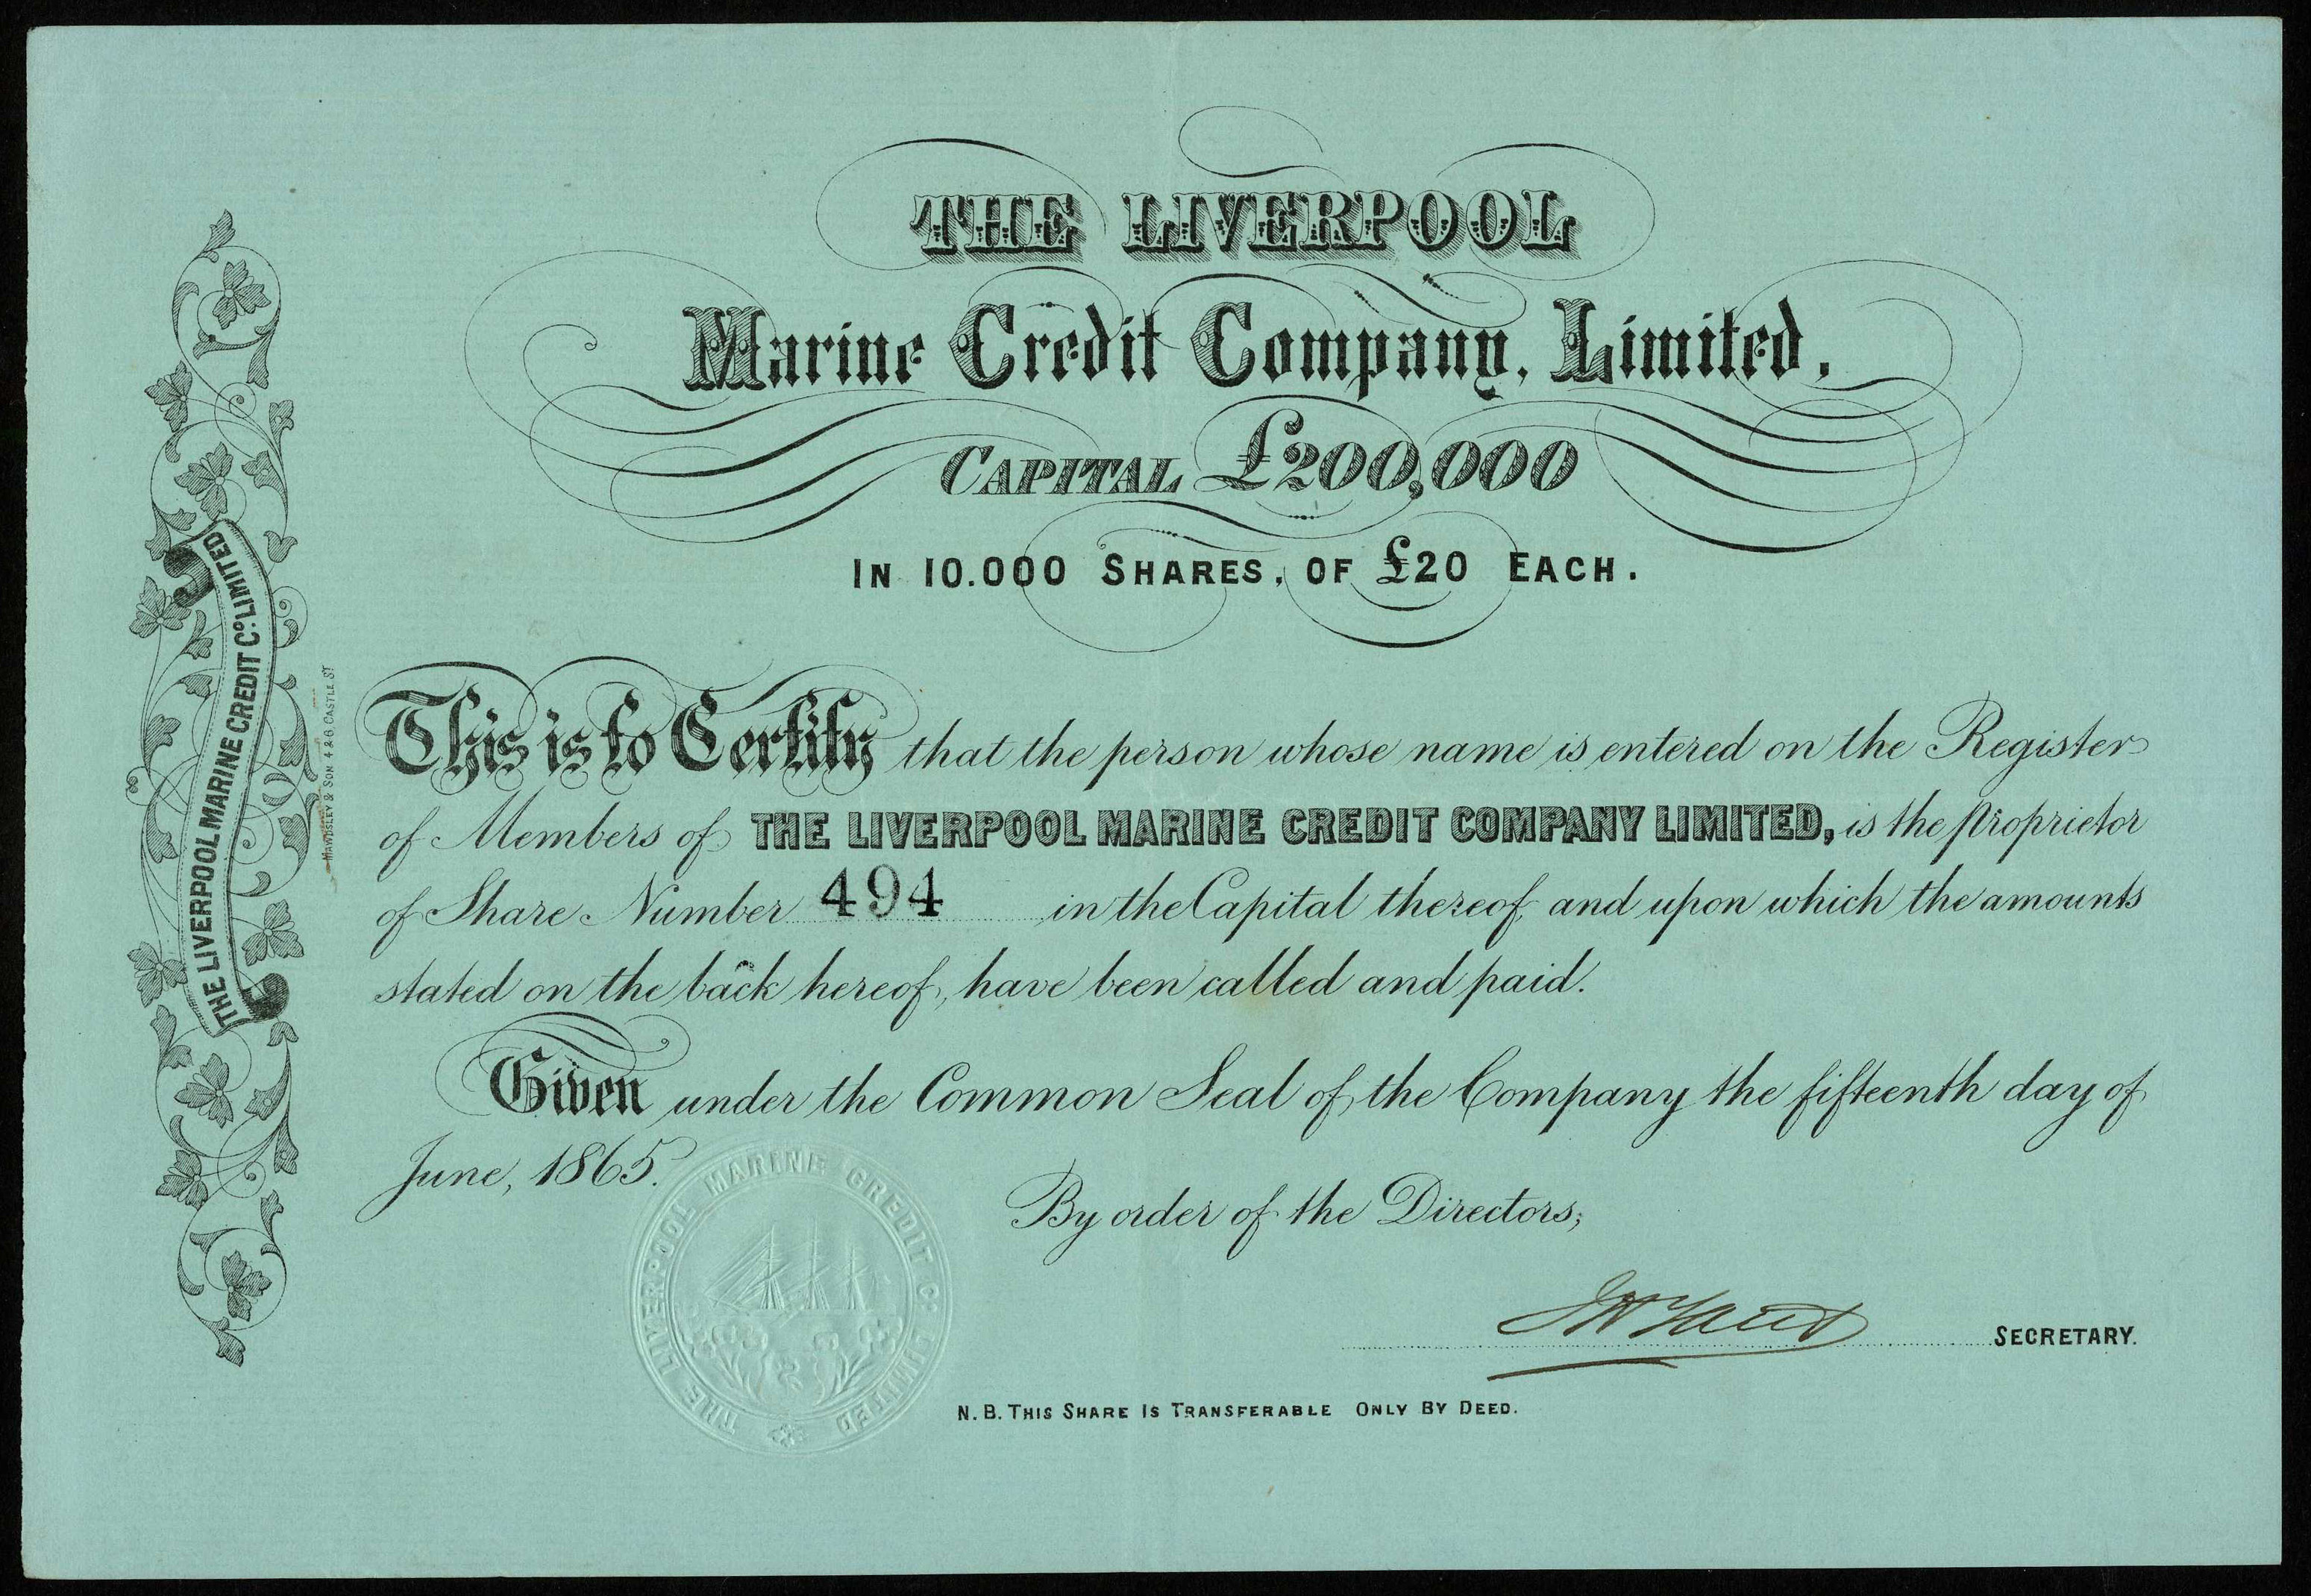 THE LIVERPOOL
Marine Credit Company, Limited,
CAPITAL £200,000
IN 10.000 SHARES, OF £20 EACH.
This is to Certify that the person whose name is entered on the Register
of Members of THE LIVERPOOL MARINE CREDIT COMPANY LIMITED, is the Proprietor
of Share Number 494 in the Capital thereof and upon which the amounts
stated on the back hereof, have been called and paid.
Given under the Common Seal of the Company the fifteenth day of
June, 1865.
By order of the Directors;
SECRETARY.
N.B. THIS SHARE IS TRANSFERABLE ONLY BY DEED.
THE LIVERPOOL MARINE CREDIT Co. LIMITED
MAWDSLEY & SON 4 & 6 CASTLE ST
THE LIVERPOOL MARINE CREDIT Co. LIMITED